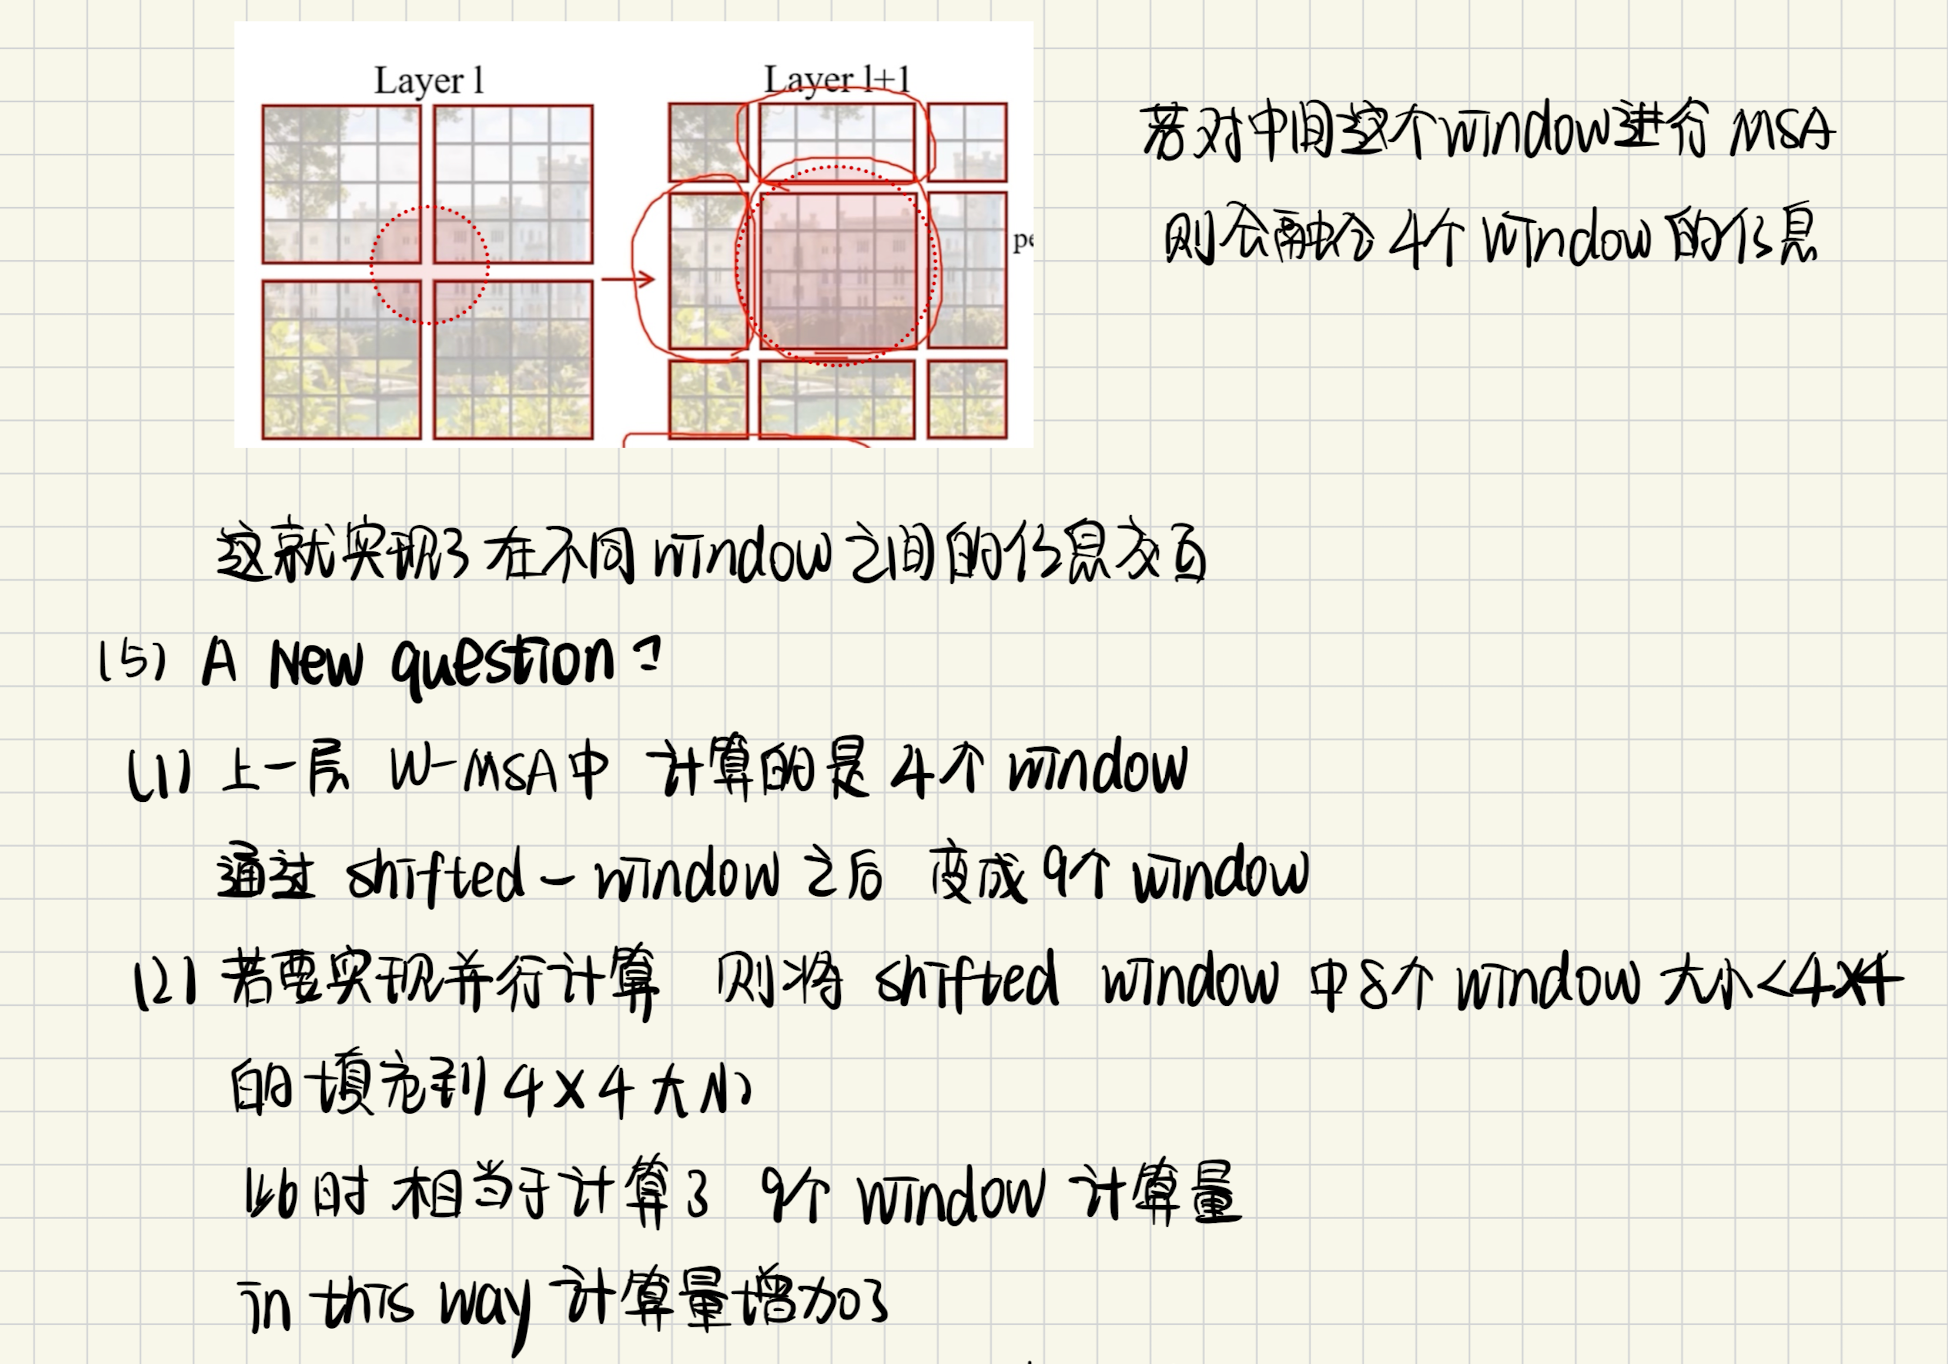 Layer l
Layer l+1
pe
若对中间这个window进行 MSA
则会融合 4个 window 的信息
这就实现了在不同 window 之间的信息交互
(5) A New question:
(1) 上一层 W-MSA中 计算的是 4个 window
通过 shifted-window 之后 变成 9个 window
(2) 若要实现并行计算 则将 shifted window 中8个 window 大小<4×4
的填充到 4×4 大小
此时相当于计算了 9个 window 计算量
in this way 计算量增加了